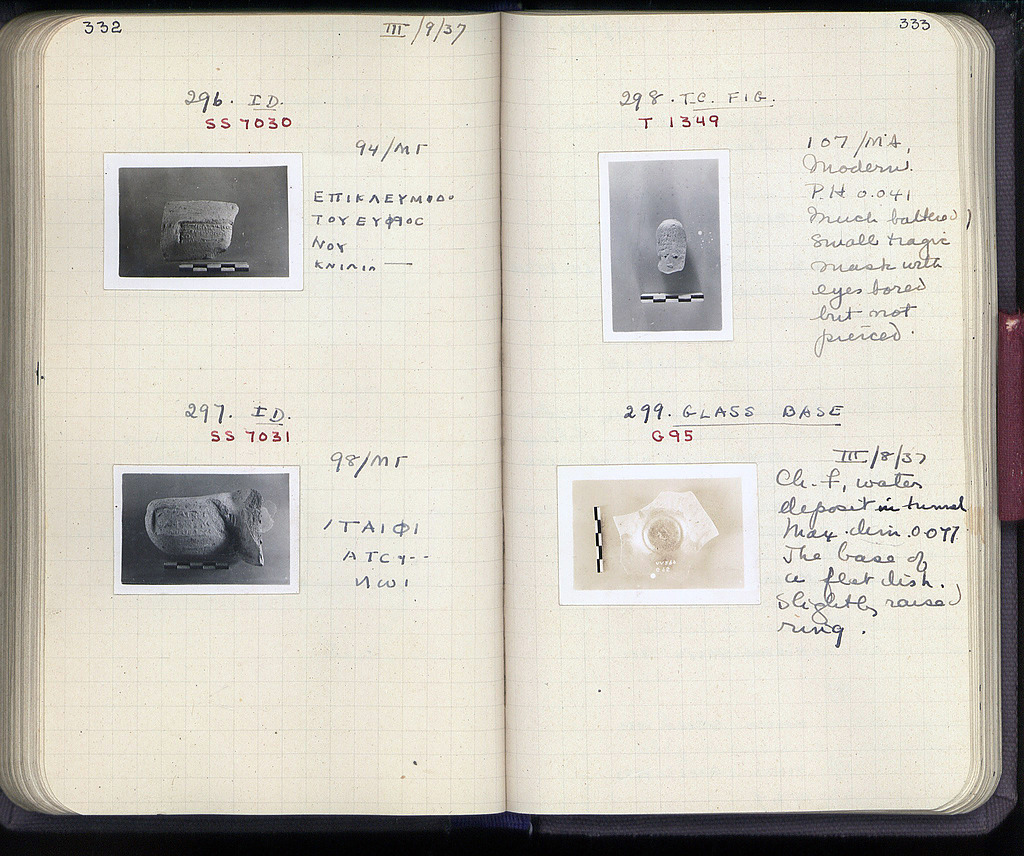 332
III/9/37
296. I D.
SS 7030
94/ΜΓ
ΕΠΙΚΛΕΥΜΒΟ
ΤΟΥ ΕΥΦΡΟC
ΝΟΥ
ΚΝΙΔΙΑ
297. I D.
SS 7031
98/ΜΓ
ΙΤΑΙΦΙ
ΑΤCΥ--
ΝΩΙ
333
298. T.C. FIG.
T 1349
107/ΜΔ,
Modern.
P.H 0.041
Much battered
small tragic
mask with
eyes bored
but not
pierced.
299. GLASS BASE
G 95
III/8/37
Ch. F, water
deposit in tunnel
Max. dim. 0.077
The base of
a flat dish.
Slightly raised
ring.